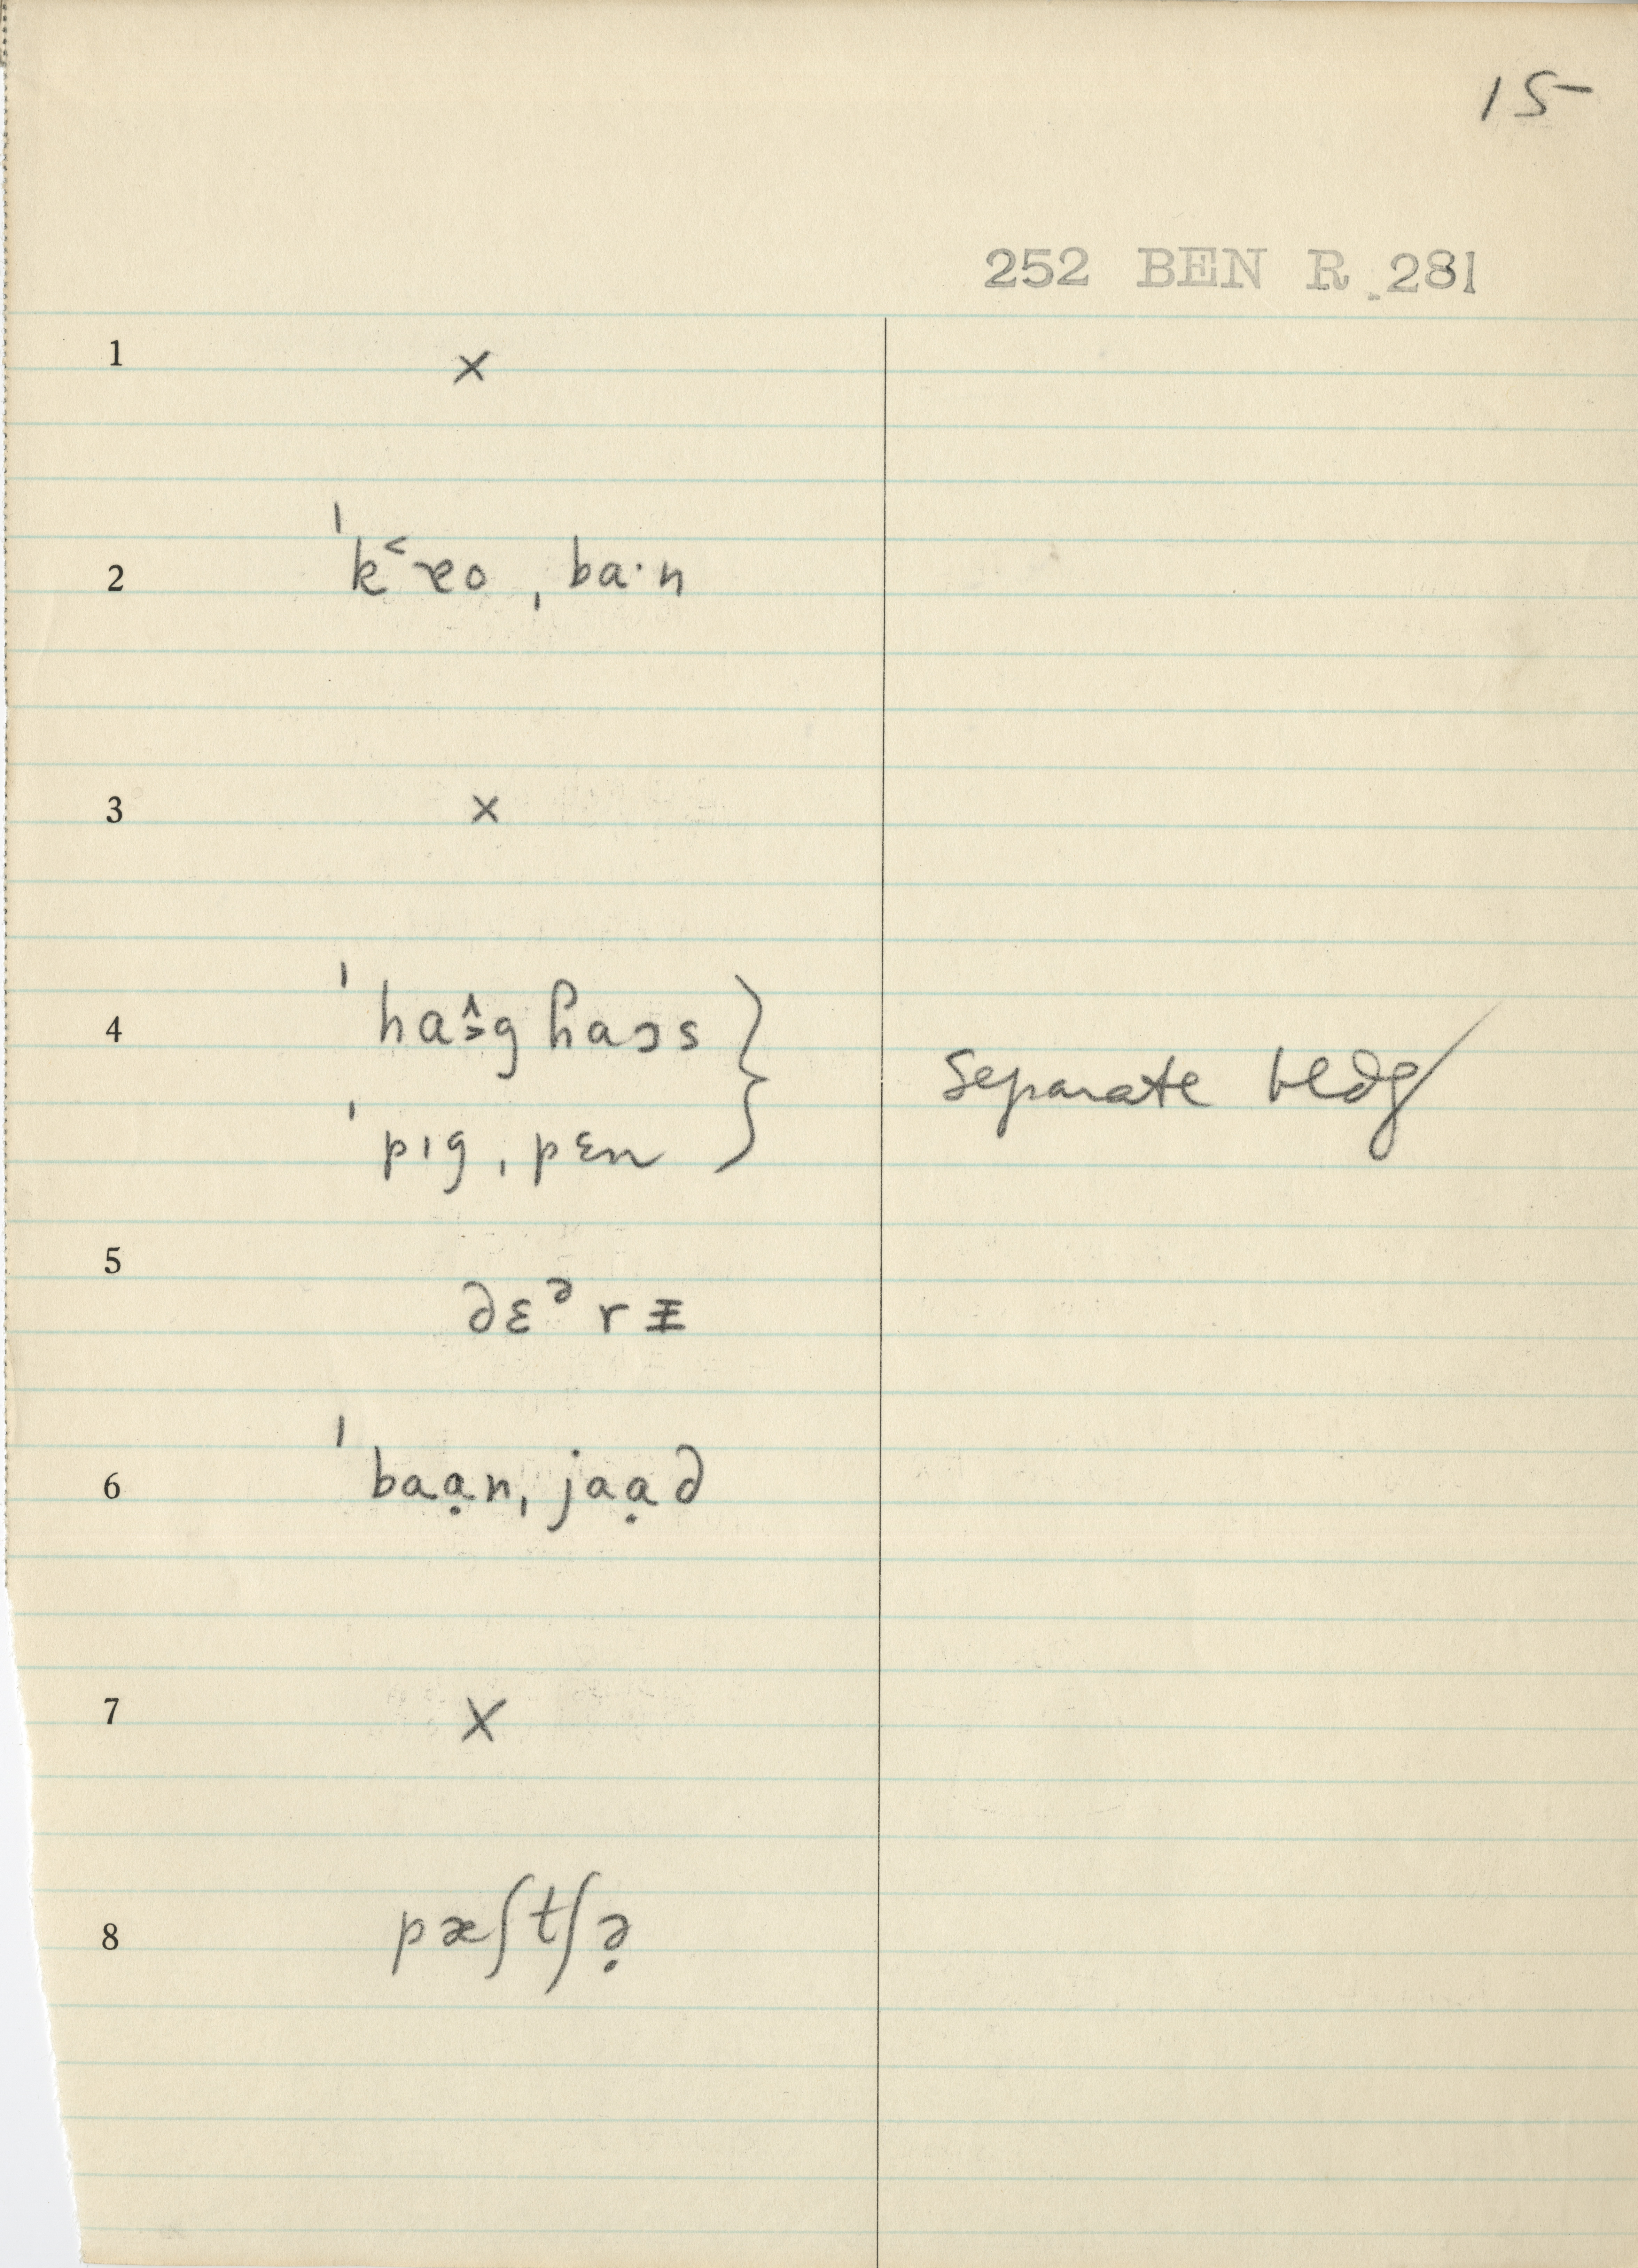 15
252 BEN R. 281
1 ×
2 ˈk˂æo ˌba·n
3 ×
4 ˈhaɔ̭g ɦaɔs
ˈpɪg ˌpɛn } separate bldg
5 dɛᵊrɨ
6 ˈbaạnˌjaạd
7 ×
8 pæʃtʃə̣